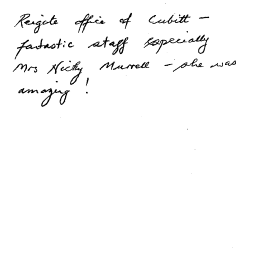 Reigate office of Cubitt -
fantastic staff especially
Mrs Nicky Murrell - she was
amazing !